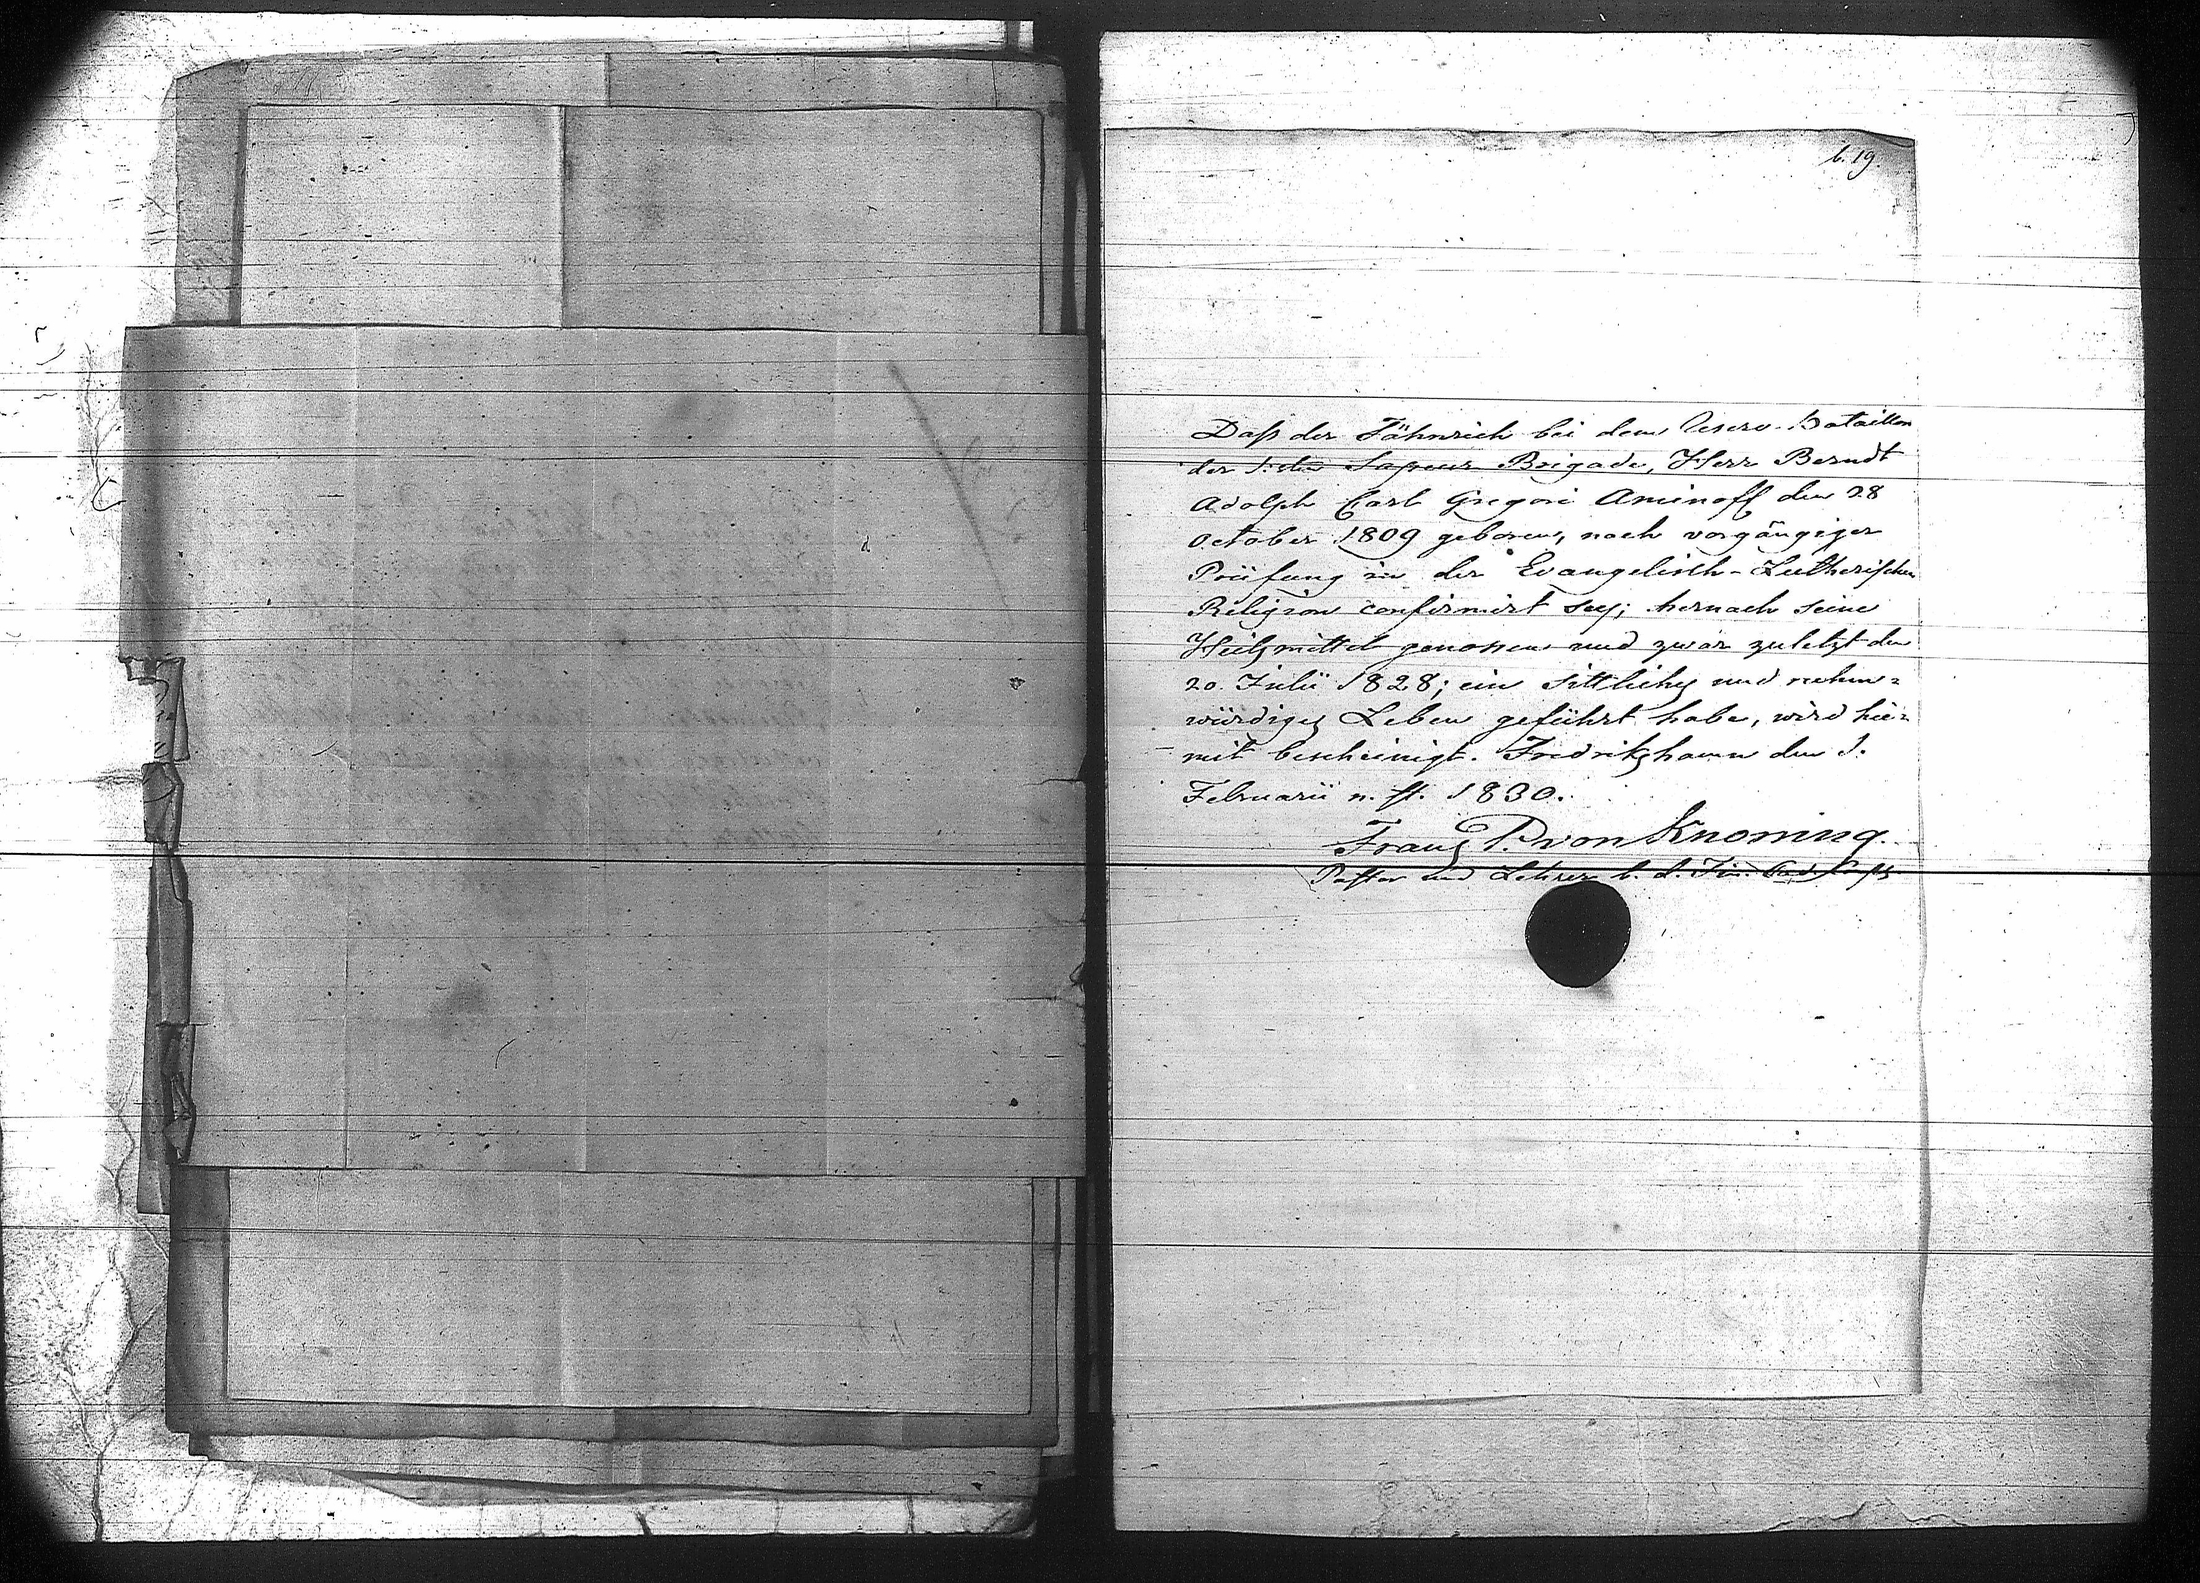 b. 19.
Daß der Fähnrich bei dem Reserv-Bataillon
der 1. Sapeur Brigade, Herr Berndt
Adolph Carl Gregori Aminoff den 28
October 1809 geboren, nach vorgängiger
Prüfung in der Evangelisch-Lutherischen
Religion confirmirt sey; hernach seine
Heilsmittel genossen und zwar zuletzt den
20. Julii 1828; ein sittliches und ruhm-
würdiges Leben geführt habe, wird hie-
mit bescheinigt. Fredrikshamn den 1.
Februarii n. st. 1830.
Franz P. von Knorring.
Pastor und Lehrer b. d. Fin. Cad. Corps.